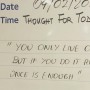 Date 04/02/20
Time THOUGHT FOR TOD
" YOU ONLY LIVE O
BUT IF YOU DO IT R
ONCE IS ENOUGH "